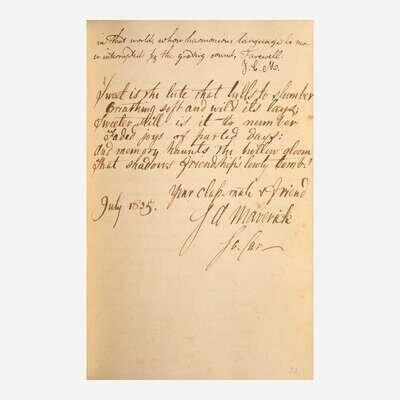 in that world, whose harmonious language is ne-
er interrupted by the grating sound, Farewell.
Sweet is the lute that lulls to slumber
Breathing soft and wild its lays;
Sweeter still is it to number
Faded joys of parted days:
And memory haunts the hollow gloom
That shadows friendship's lowly tomb!
Your class-mate & friend
July 1835.
S A Maverick
So. Car